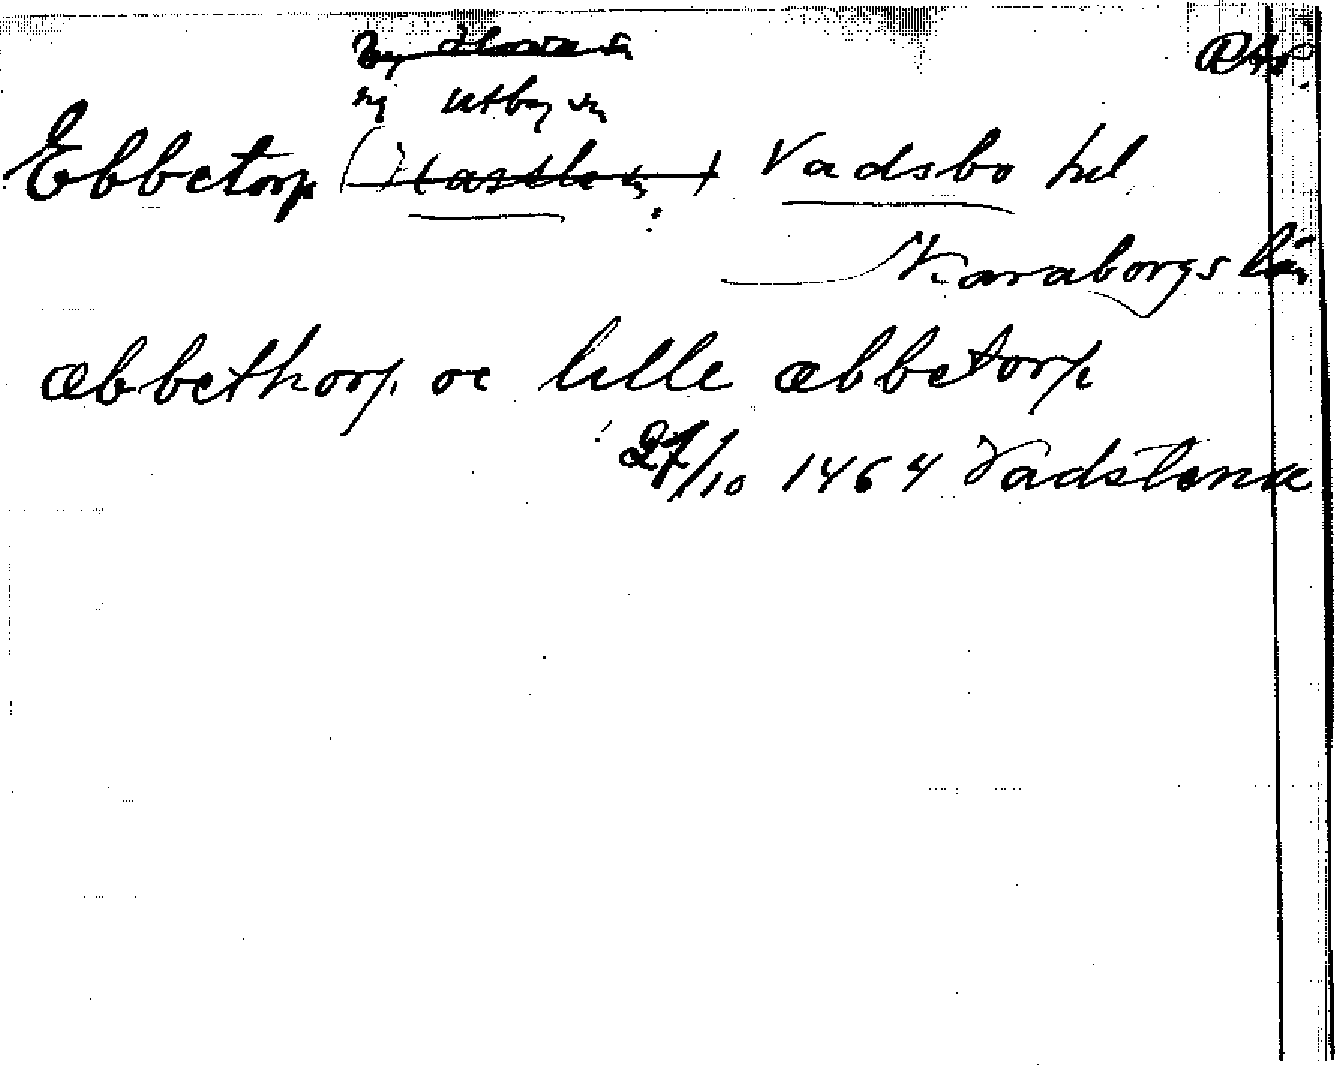 Hova sn
ny Utby sn
Ebbetorp () Vadsbo hd
Skaraborgs län
æbbethorp oc lille æbbetorp
27/10 1464 Vadstena